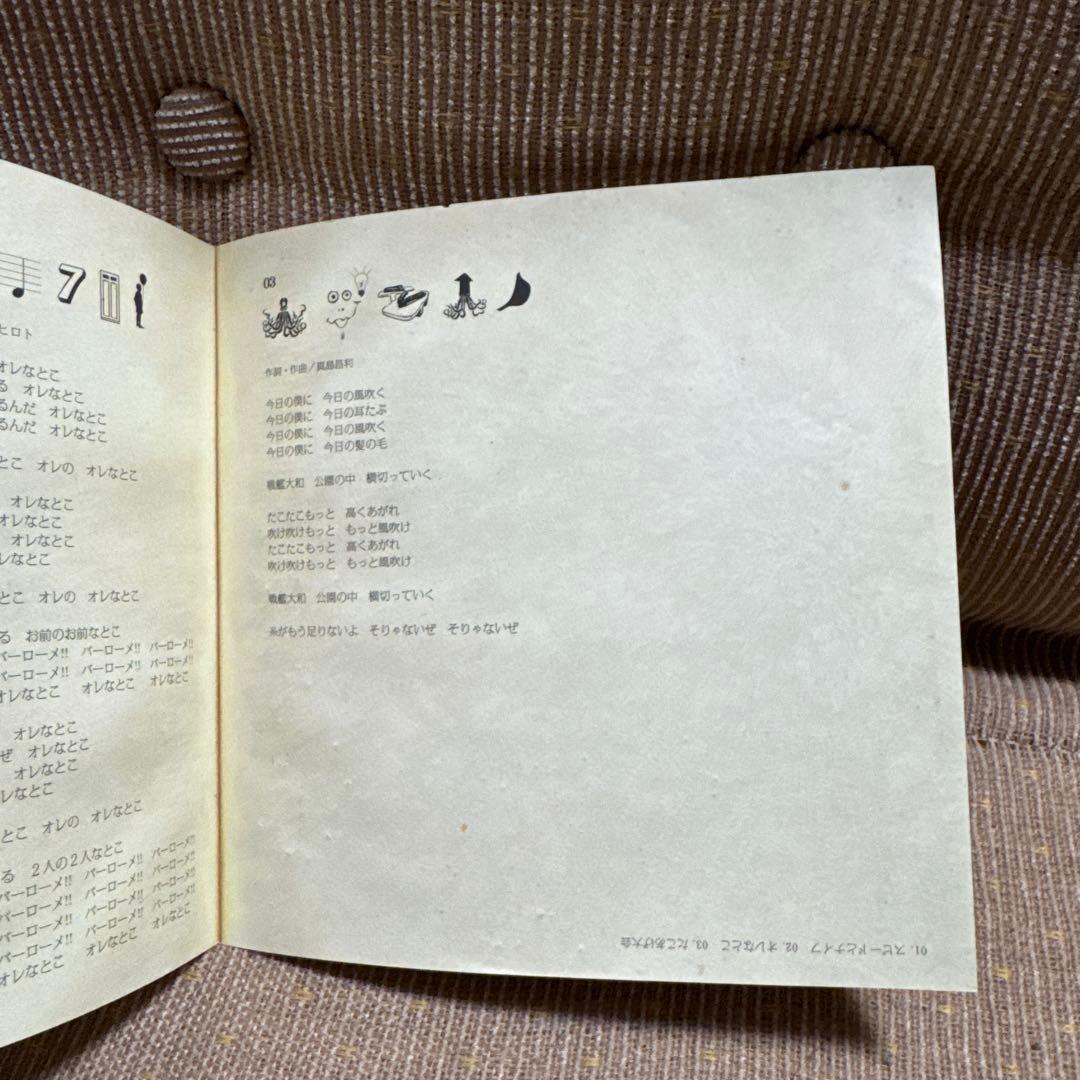 ヒロト
オレなとこ
る　オレなとこ
るんだ　オレなとこ
るんだ　オレなとこ
とこ　オレの　オレなとこ
オレなとこ
オレなとこ
オレなとこ
レなとこ
とこ　オレの　オレなとこ
る　お前のお前なとこ
バーローメ!!　バーローメ!!　バーローメ!!
バーローメ!!　バーローメ!!　バーローメ!!
オレなとこ　オレなとこ　オレなとこ
オレなとこ
ぜ　オレなとこ
オレなとこ
レなとこ
とこ　オレの　オレなとこ
る　2人の2人なとこ
バーローメ!!　バーローメ!!　バーローメ!!
バーローメ!!　バーローメ!!　バーローメ!!
バーローメ!!　バーローメ!!　バーローメ!!
バーローメ!!　バーローメ!!　バーローメ!!
オレなとこ　オレなとこ　オレなとこ
03
作詞・作曲／真島昌利
今日の僕に　今日の風吹く
今日の僕に　今日の耳たぶ
今日の僕に　今日の風吹く
今日の僕に　今日の髪の毛
戦艦大和　公園の中　横切っていく
たこたこもっと　高くあがれ
吹け吹けもっと　もっと風吹け
たこたこもっと　高くあがれ
吹け吹けもっと　もっと風吹け
戦艦大和　公園の中　横切っていく
糸がもう足りないよ　そりゃないぜ　そりゃないぜ
01. スピードとナイフ　02. オレなとこ　03. たこあげ大会